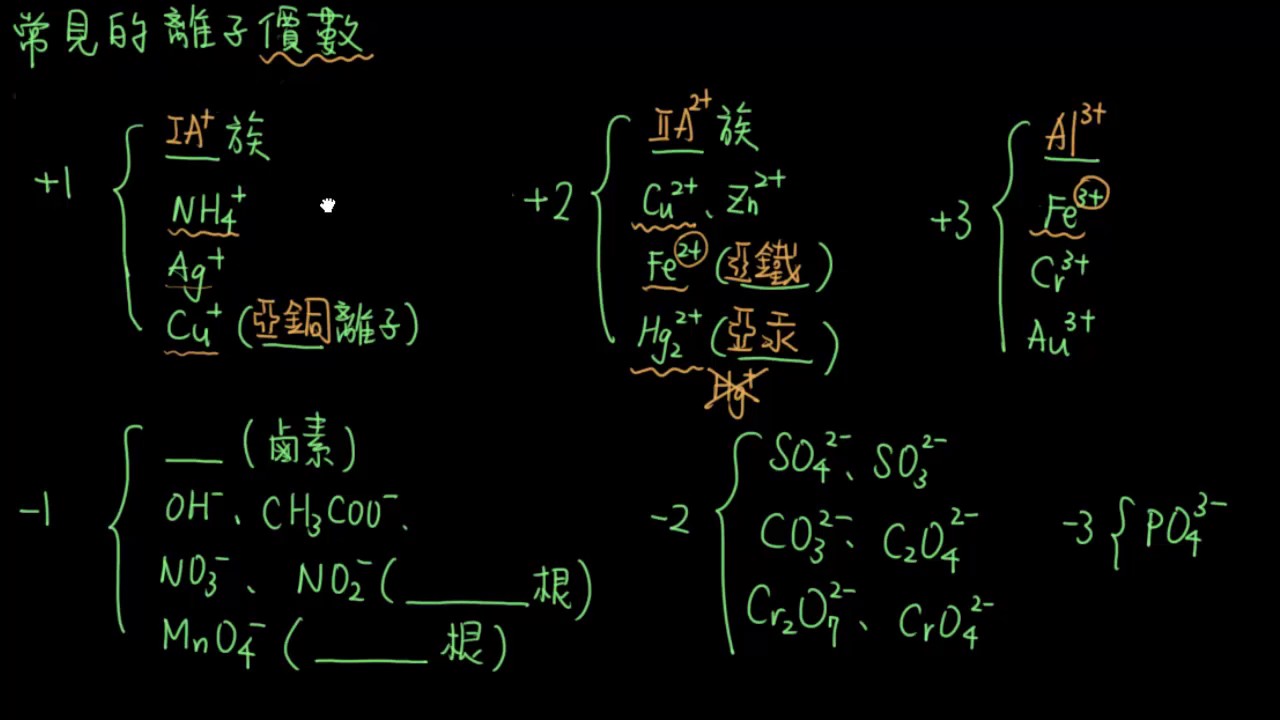 常見的離子價數
+1
IA⁺族
NH₄⁺
Ag⁺
Cu⁺(亞銅離子)
+2
IIA²⁺族
Cu²⁺、Zn²⁺
Fe²⁺(亞鐵)
Hg₂²⁺(亞汞)
Hg⁺
+3
Al³⁺
Fe³⁺
Cr³⁺
Au³⁺
-1
___(鹵素)
OH⁻、CH₃COO⁻、
NO₃⁻、NO₂⁻(______根)
MnO₄⁻(_____根)
-2
SO₄²⁻、SO₃²⁻
CO₃²⁻、C₂O₄²⁻
Cr₂O₇²⁻、CrO₄²⁻
-3
PO₄³⁻